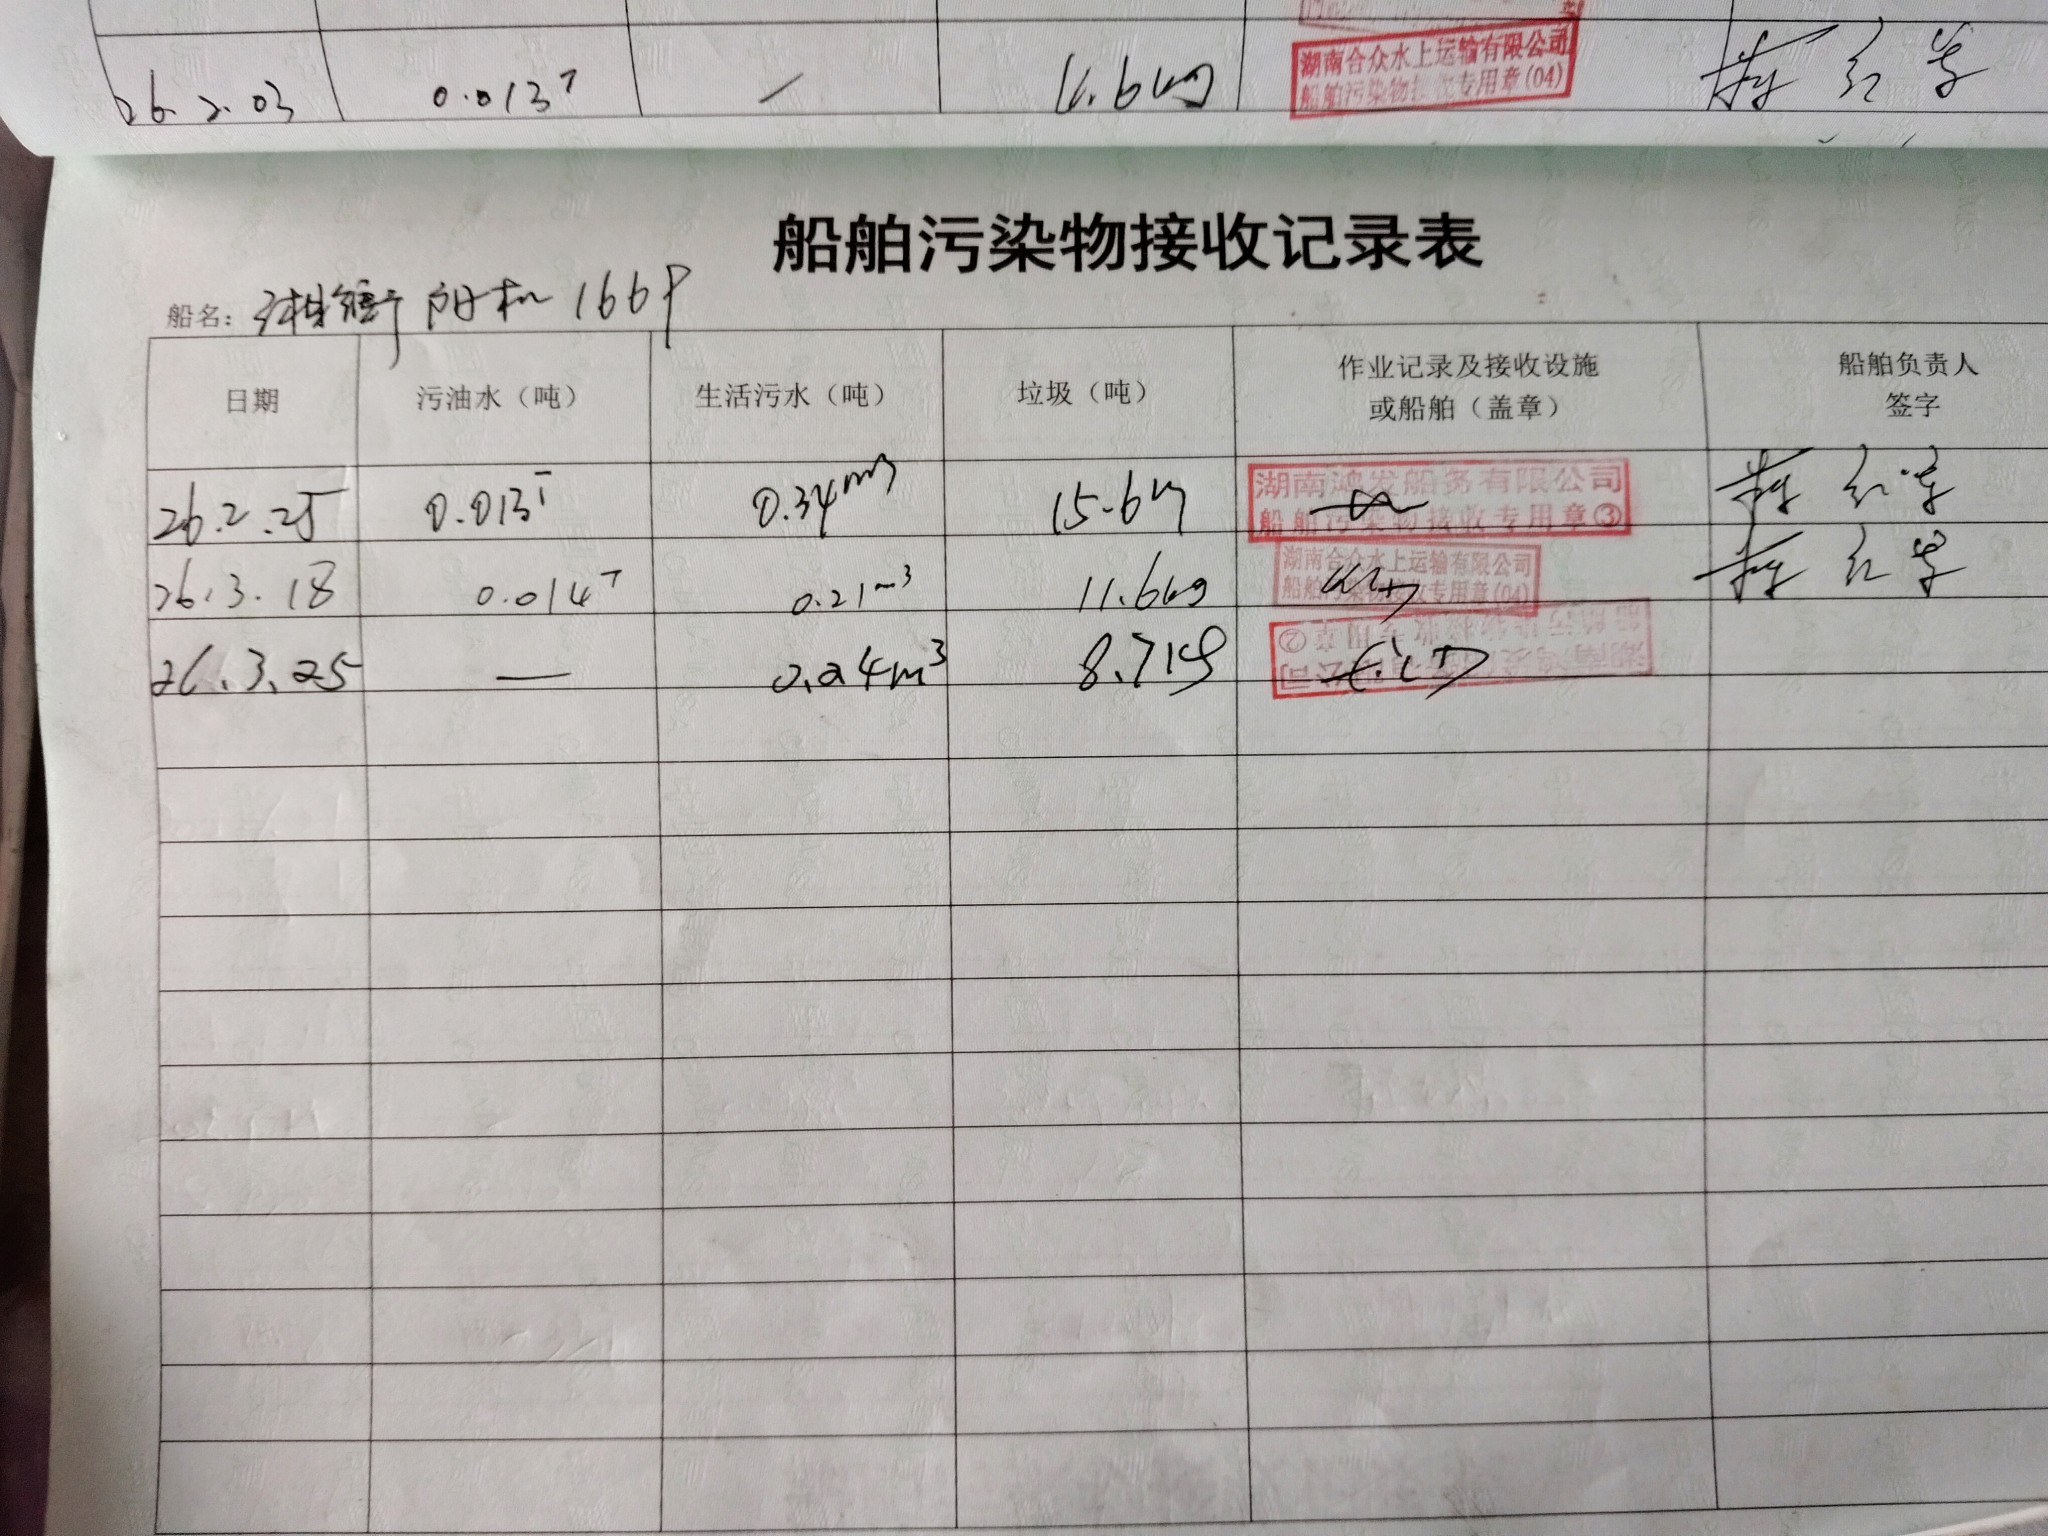 26.2.03 0.013T / 11.6kg 湖南合众水上运输有限公司
船舶污染物接收专用章(04)
船舶污染物接收记录表
船名: 湘衡阳机166
日期 污油水（吨） 生活污水（吨） 垃圾（吨） 作业记录及接收设施 船舶负责人
或船舶（盖章） 签字
26.2.25 0.013T 0.34m3 15.6kg 湖南鸿发船务有限公司
船舶污染物接收专用章③
26.3.18 0.014T 0.21m3 11.6kg 湖南合众水上运输有限公司
船舶污染物接收专用章(04)
26.3.25 — 0.24m3 8.7kg